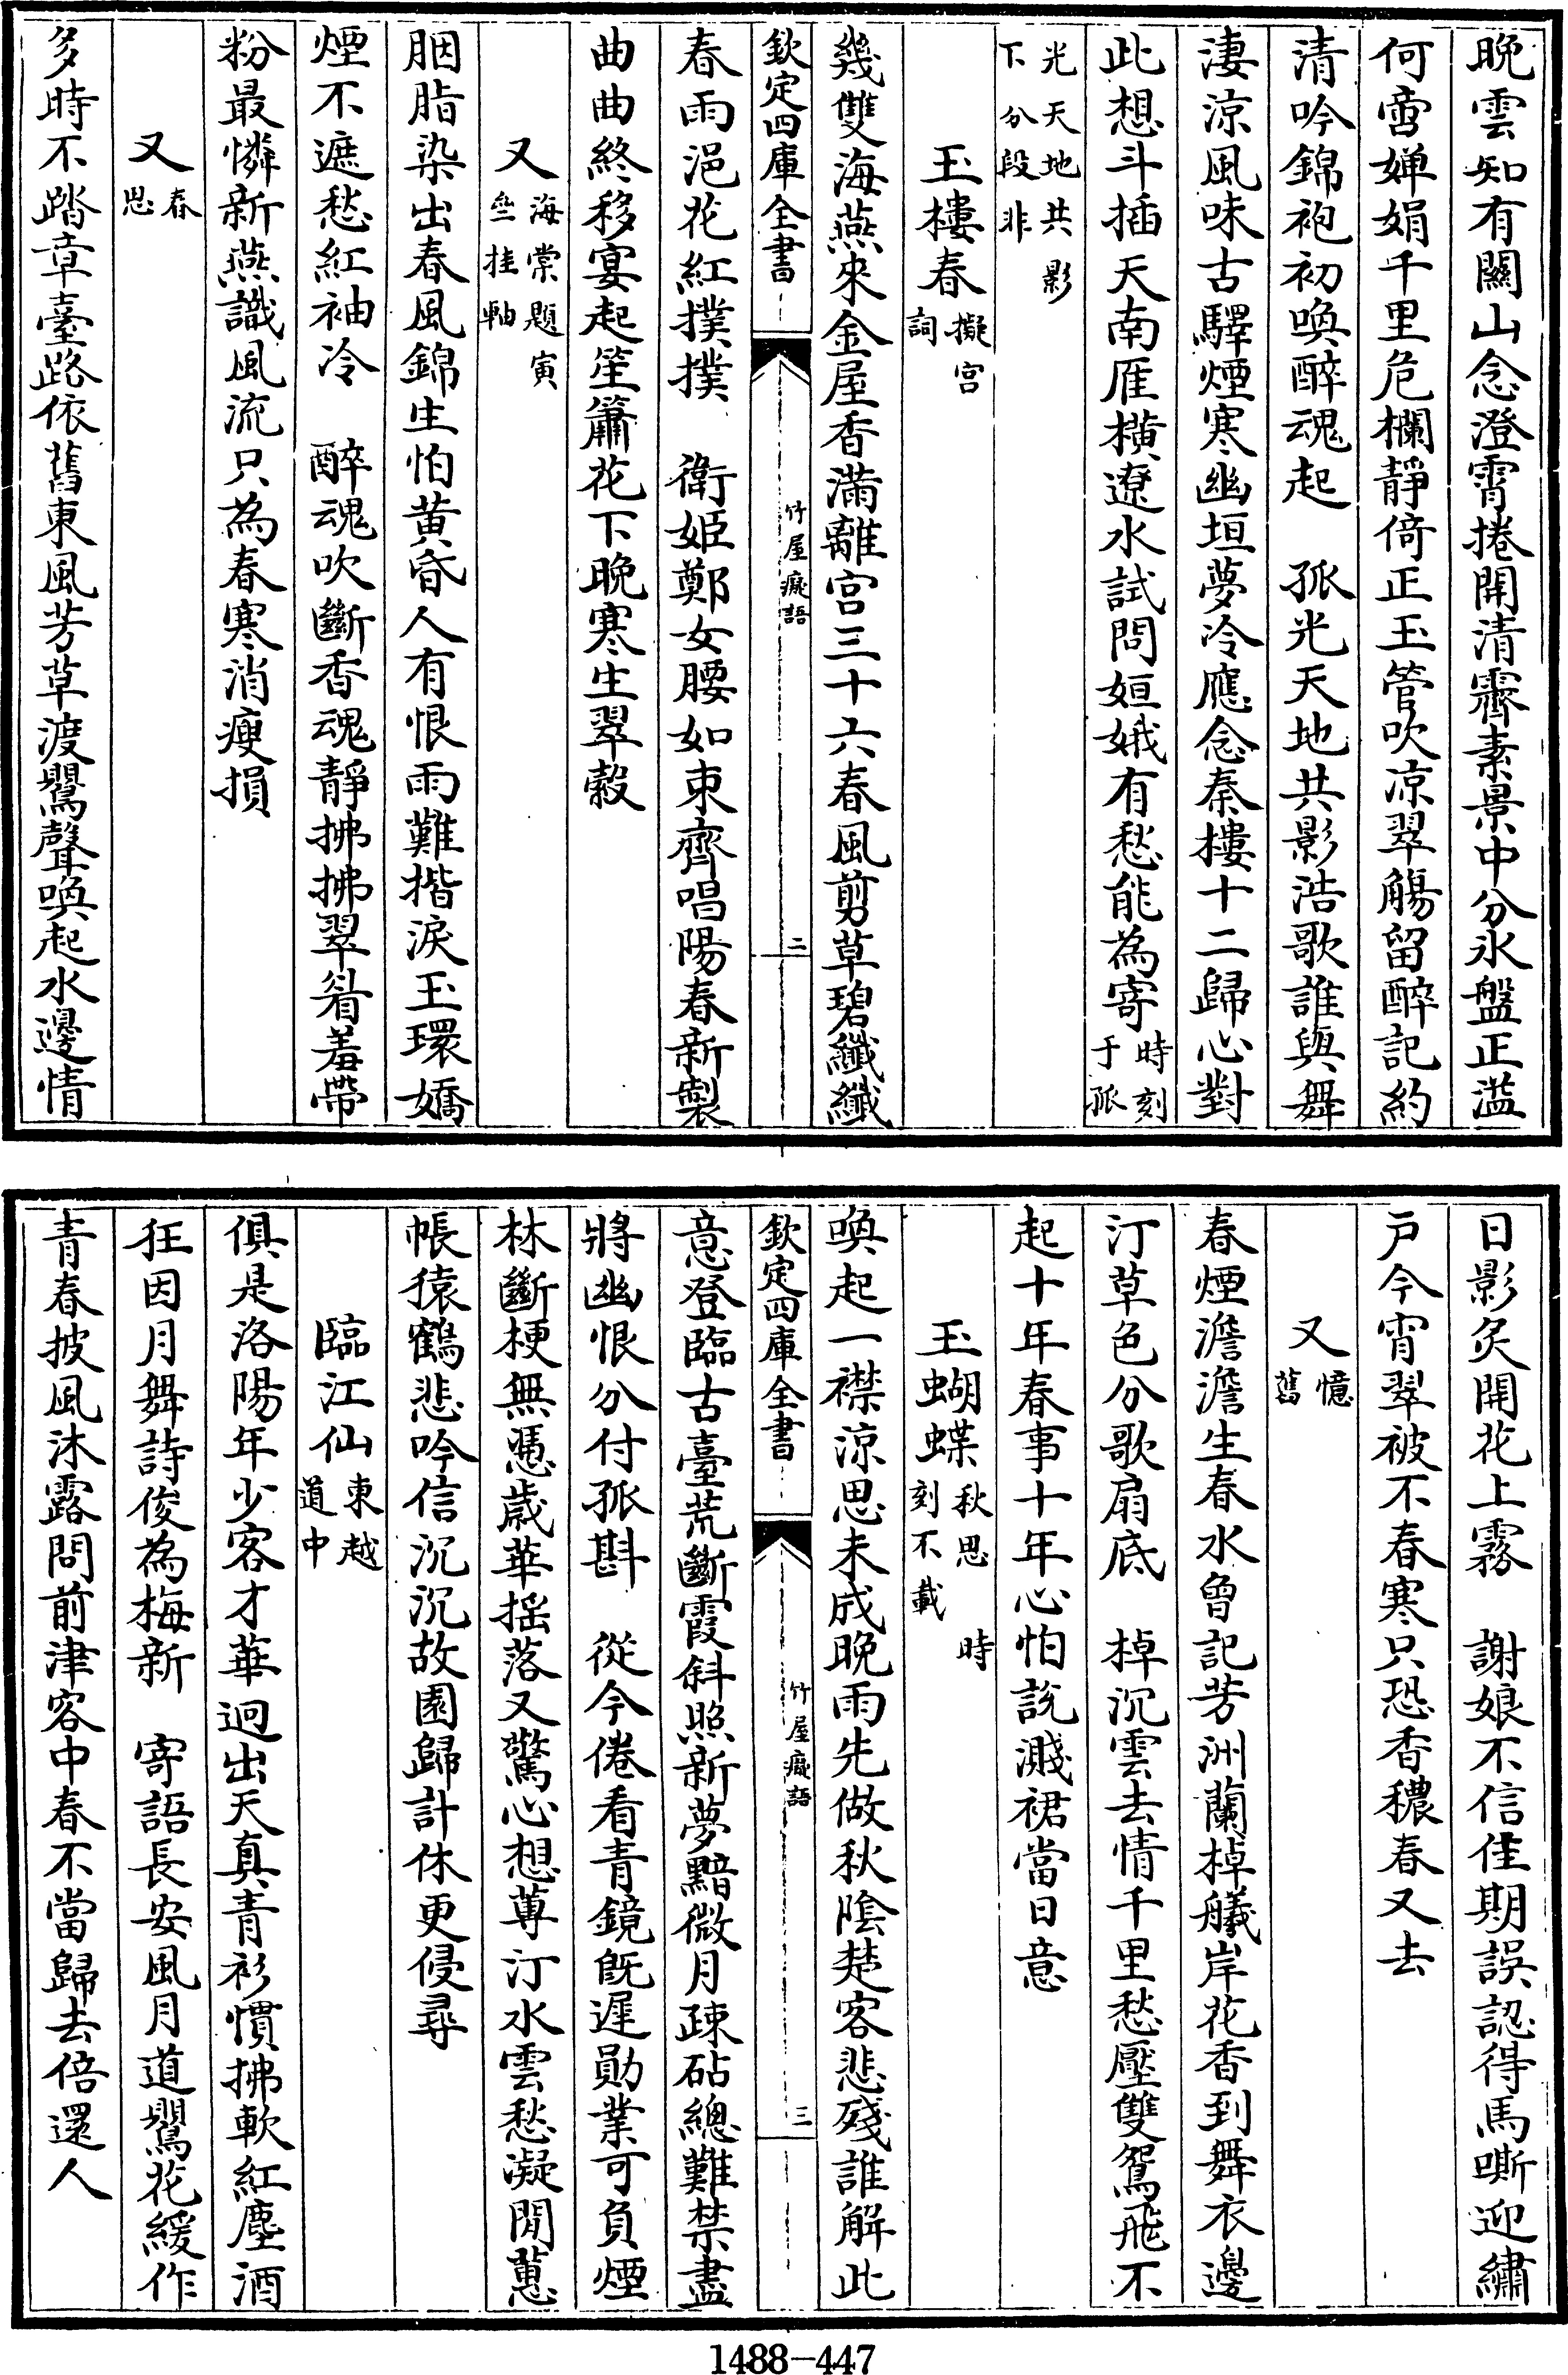 晚雲知有關山念澄霄捲開清霽素景中分冰盤正溢
何啻嬋娟千里危欄靜倚正玉管吹凉翠觴留醉記約
清吟錦袍初喚醉魂起　孤光天地共影浩歌誰與舞
淒涼風味古驛煙寒幽垣夢冷應念秦樓十二歸心對
此想斗插天南雁橫遼水試問姮娥有愁能為寄時刻于孤
光天地共影下分段非
玉樓春擬宮詞
幾雙海燕來金屋香滿離宮三十六春風剪草碧纖纖
欽定四庫全書
竹屋癡語
二
春雨浥花紅撲撲　衛姬鄭女腰如束齊唱陽春新製
曲曲終移宴起笙簫花下晚寒生翠縠
又海棠題寅齋挂軸
胭脂染出春風錦生怕黃昏人有恨雨難揩淚玉環嬌
煙不遮愁紅袖冷　醉魂吹斷香魂靜拂拂翠眉羞帶
粉最憐新燕識風流只為春寒消瘦損
又春思
多時不踏章臺路依舊東風芳草渡鶯聲喚起水邊情
日影炙開花上霧　謝娘不信佳期誤認得馬嘶迎繡
戶今宵翠被不春寒只恐香穠春又去
又憶舊
春煙澹澹生春水曾記芳洲蘭棹艤岸花香到舞衣邊
汀草色分歌扇底　棹沉雲去情千里愁壓雙鴛飛不
起十年春事十年心怕說濺裙當日意
玉蝴蝶秋思　時刻不載
喚起一襟涼思未成晚雨先做秋陰楚客悲殘誰解此
欽定四庫全書
竹屋癡語
三
意登臨古臺荒斷霞斜照新夢黯微月疎砧總難禁盡
將幽恨分付孤斟　從今倦看青鏡既遲勛業可負煙
林斷梗無憑歲華搖落又驚心想蓴汀水雲愁凝閒蕙
帳猿鶴悲吟信沉沉故園歸計休更侵尋
臨江仙東越道中
俱是洛陽年少客才華迥出天真青衫慣拂軟紅塵酒
狂因月舞詩俊為梅新　寄語長安風月道鶯花緩作
青春披風沐露問前津客中春不當歸去倍還人
1488-447